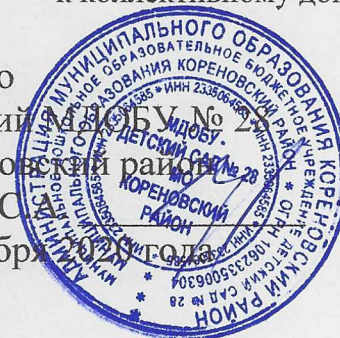 к коллективному до
о
ий МДОБУ № 28
овский район
С.А.
бря 2020 года
АДМИНИСТРАЦИЯ МУНИЦИПАЛЬНОГО ОБРАЗОВАНИЯ КОРЕНОВСКИЙ РАЙОН
ОБРАЗОВАТЕЛЬНОЕ БЮДЖЕТНОЕ УЧРЕЖДЕНИЕ ДЕТСКИЙ САД № 28
МУНИЦИПАЛЬНОГО ОБРАЗОВАНИЯ КОРЕНОВСКИЙ РАЙОН * ОГРН 1062335006304
МДОБУ
ДЕТСКИЙ САД № 28
МО
КОРЕНОВСКИЙ
РАЙОН